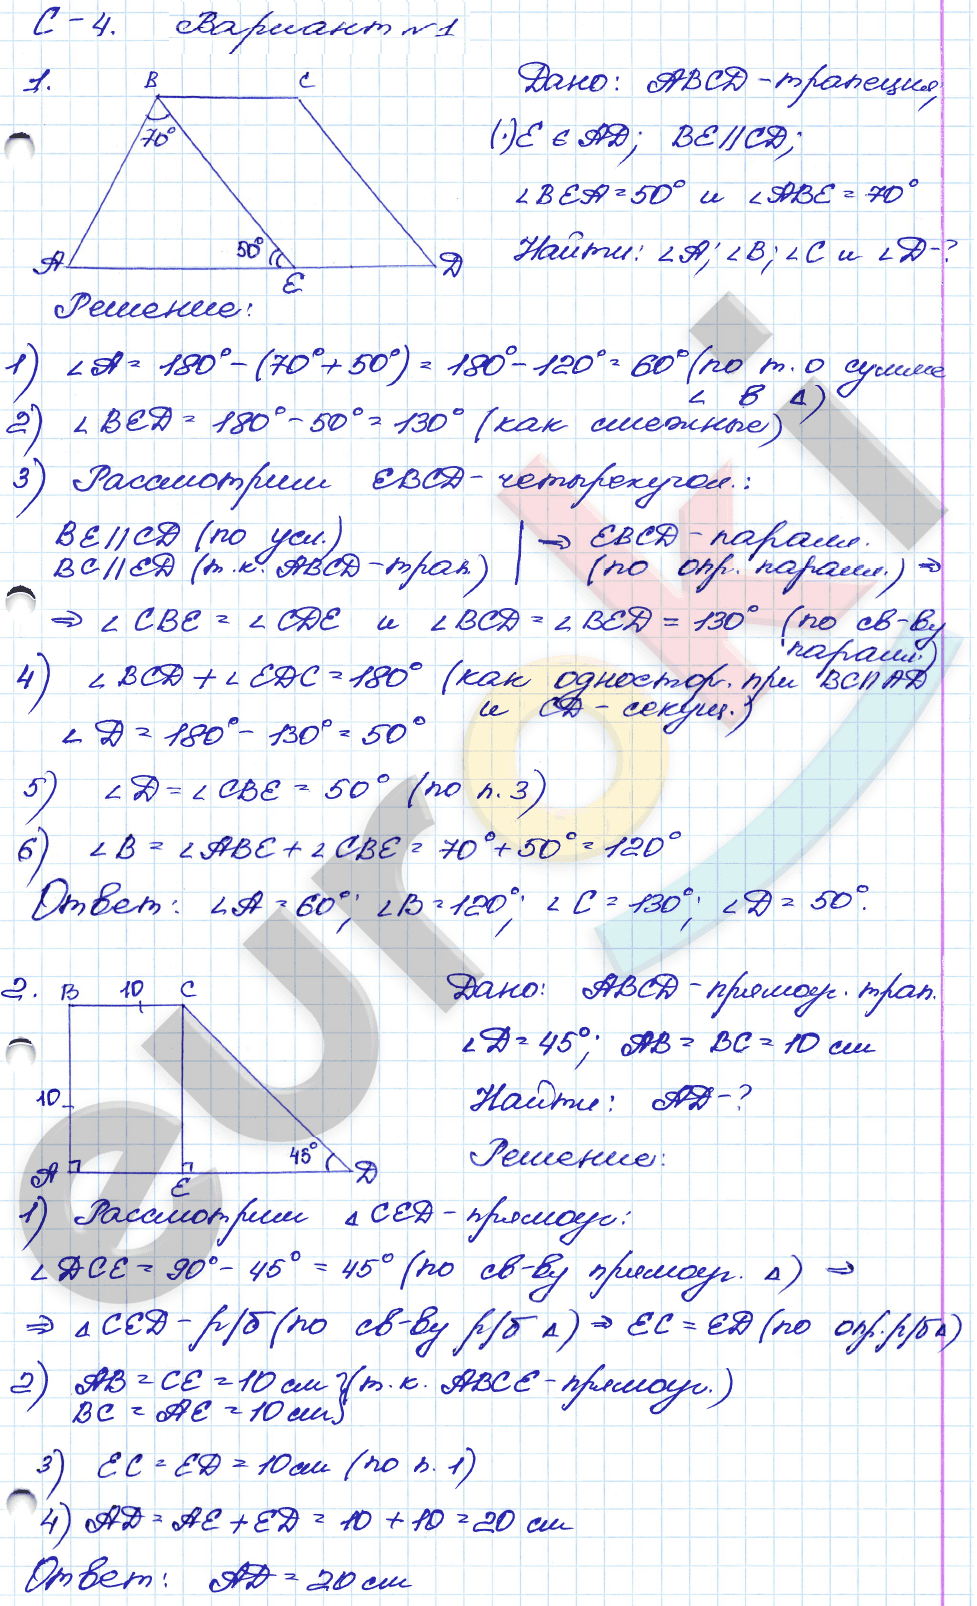 С-4. Вариант №1
1.
B C
70°
50°
A E D
Дано: ABCD - трапеция,
(·)E ∈ AD; BE ∥ CD;
∠BEA = 50° и ∠ABE = 70°
Найти: ∠A; ∠B; ∠C и ∠D - ?
Решение:
1) ∠A = 180° - (70° + 50°) = 180° - 120° = 60° (по т. о сумме
∠ в Δ)
2) ∠BED = 180° - 50° = 130° (как смежные)
3) Рассмотрим EBCD - четырехугол.:
BE ∥ CD (по усл.)
BC ∥ ED (т.к. ABCD - трап.)
⇒ EBCD - паралл.
(по опр. паралл.) ⇒
⇒ ∠CBE = ∠CDE и ∠BCD = ∠BED = 130° (по св-ву
паралл.)
4) ∠BCD + ∠EDC = 180° (как одностор. при BC ∥ AD
и CD - секущ.)
∠D = 180° - 130° = 50°
5) ∠D = ∠CBE = 50° (по п. 3)
6) ∠B = ∠ABE + ∠CBE = 70° + 50° = 120°
Ответ: ∠A = 60°; ∠B = 120°; ∠C = 130°; ∠D = 50°.
2.
B 10 C
10
45°
A E D
Дано: ABCD - прямоуг. трап.
∠D = 45°; AB = BC = 10 см
Найти: AD - ?
Решение:
1) Рассмотрим ΔCED - прямоуг:
∠DCE = 90° - 45° = 45° (по св-ву прямоуг. Δ) ⇒
⇒ ΔCED - р/б (по св-ву р/б Δ) ⇒ EC = ED (по опр. р/б Δ)
2) AB = CE = 10 см } (т.к. ABCE - прямоуг.)
BC = AE = 10 см
3) EC = ED = 10 см (по п. 1)
4) AD = AE + ED = 10 + 10 = 20 см
Ответ: AD = 20 см
euroki